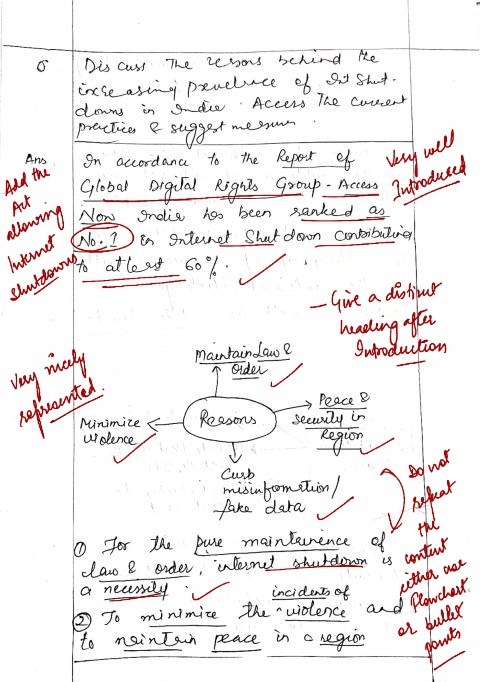 Discuss The resons behind the
increasing prevelence of Int Shut-
downs in India. Access The current
practices & suggest measures.
Ans
In accordance to the Report of
Global Digital Rights Group - Access
Now India has been ranked as
No. 1 in Internet Shutdown Contributing
to atleast 60%.
Very well
Introduced
Add the
Act
allowing
Internet
Shutdowns
- Give a distinct
heading after
Introduction
Very nicely
represented.
Maintain Law &
Order
Reasons
Peace &
security in
Region
Minimize
violence
Curb
misinformation/
fake data
Do not
repeat
the
content
either use
Flowchart
or bullet
points
① For the pure maintainence of
law & order, internet shutdown is
a necessity.
② To minimize the incidents of violence and
to maintain peace in a region